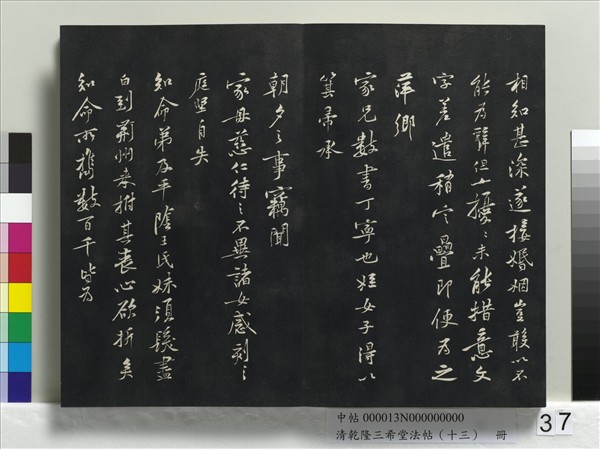 相知甚深遂接婚姻豈敢以不
能為辭但以擾〻未能措意文
字差遣稍定疊即便為之
萍鄉
家兄數書丁寧也姪女子得以
箕帚承
朝夕之事竊聞
家母慈仁待之不異諸女感刻〻
庭堅自失
知命弟及平陰王氏妹須髮盡
白到荊州來拊其喪心欲折矣
知命所攜數百千皆為
中帖 000013N000000000
清乾隆三希堂法帖（十三） 冊
37